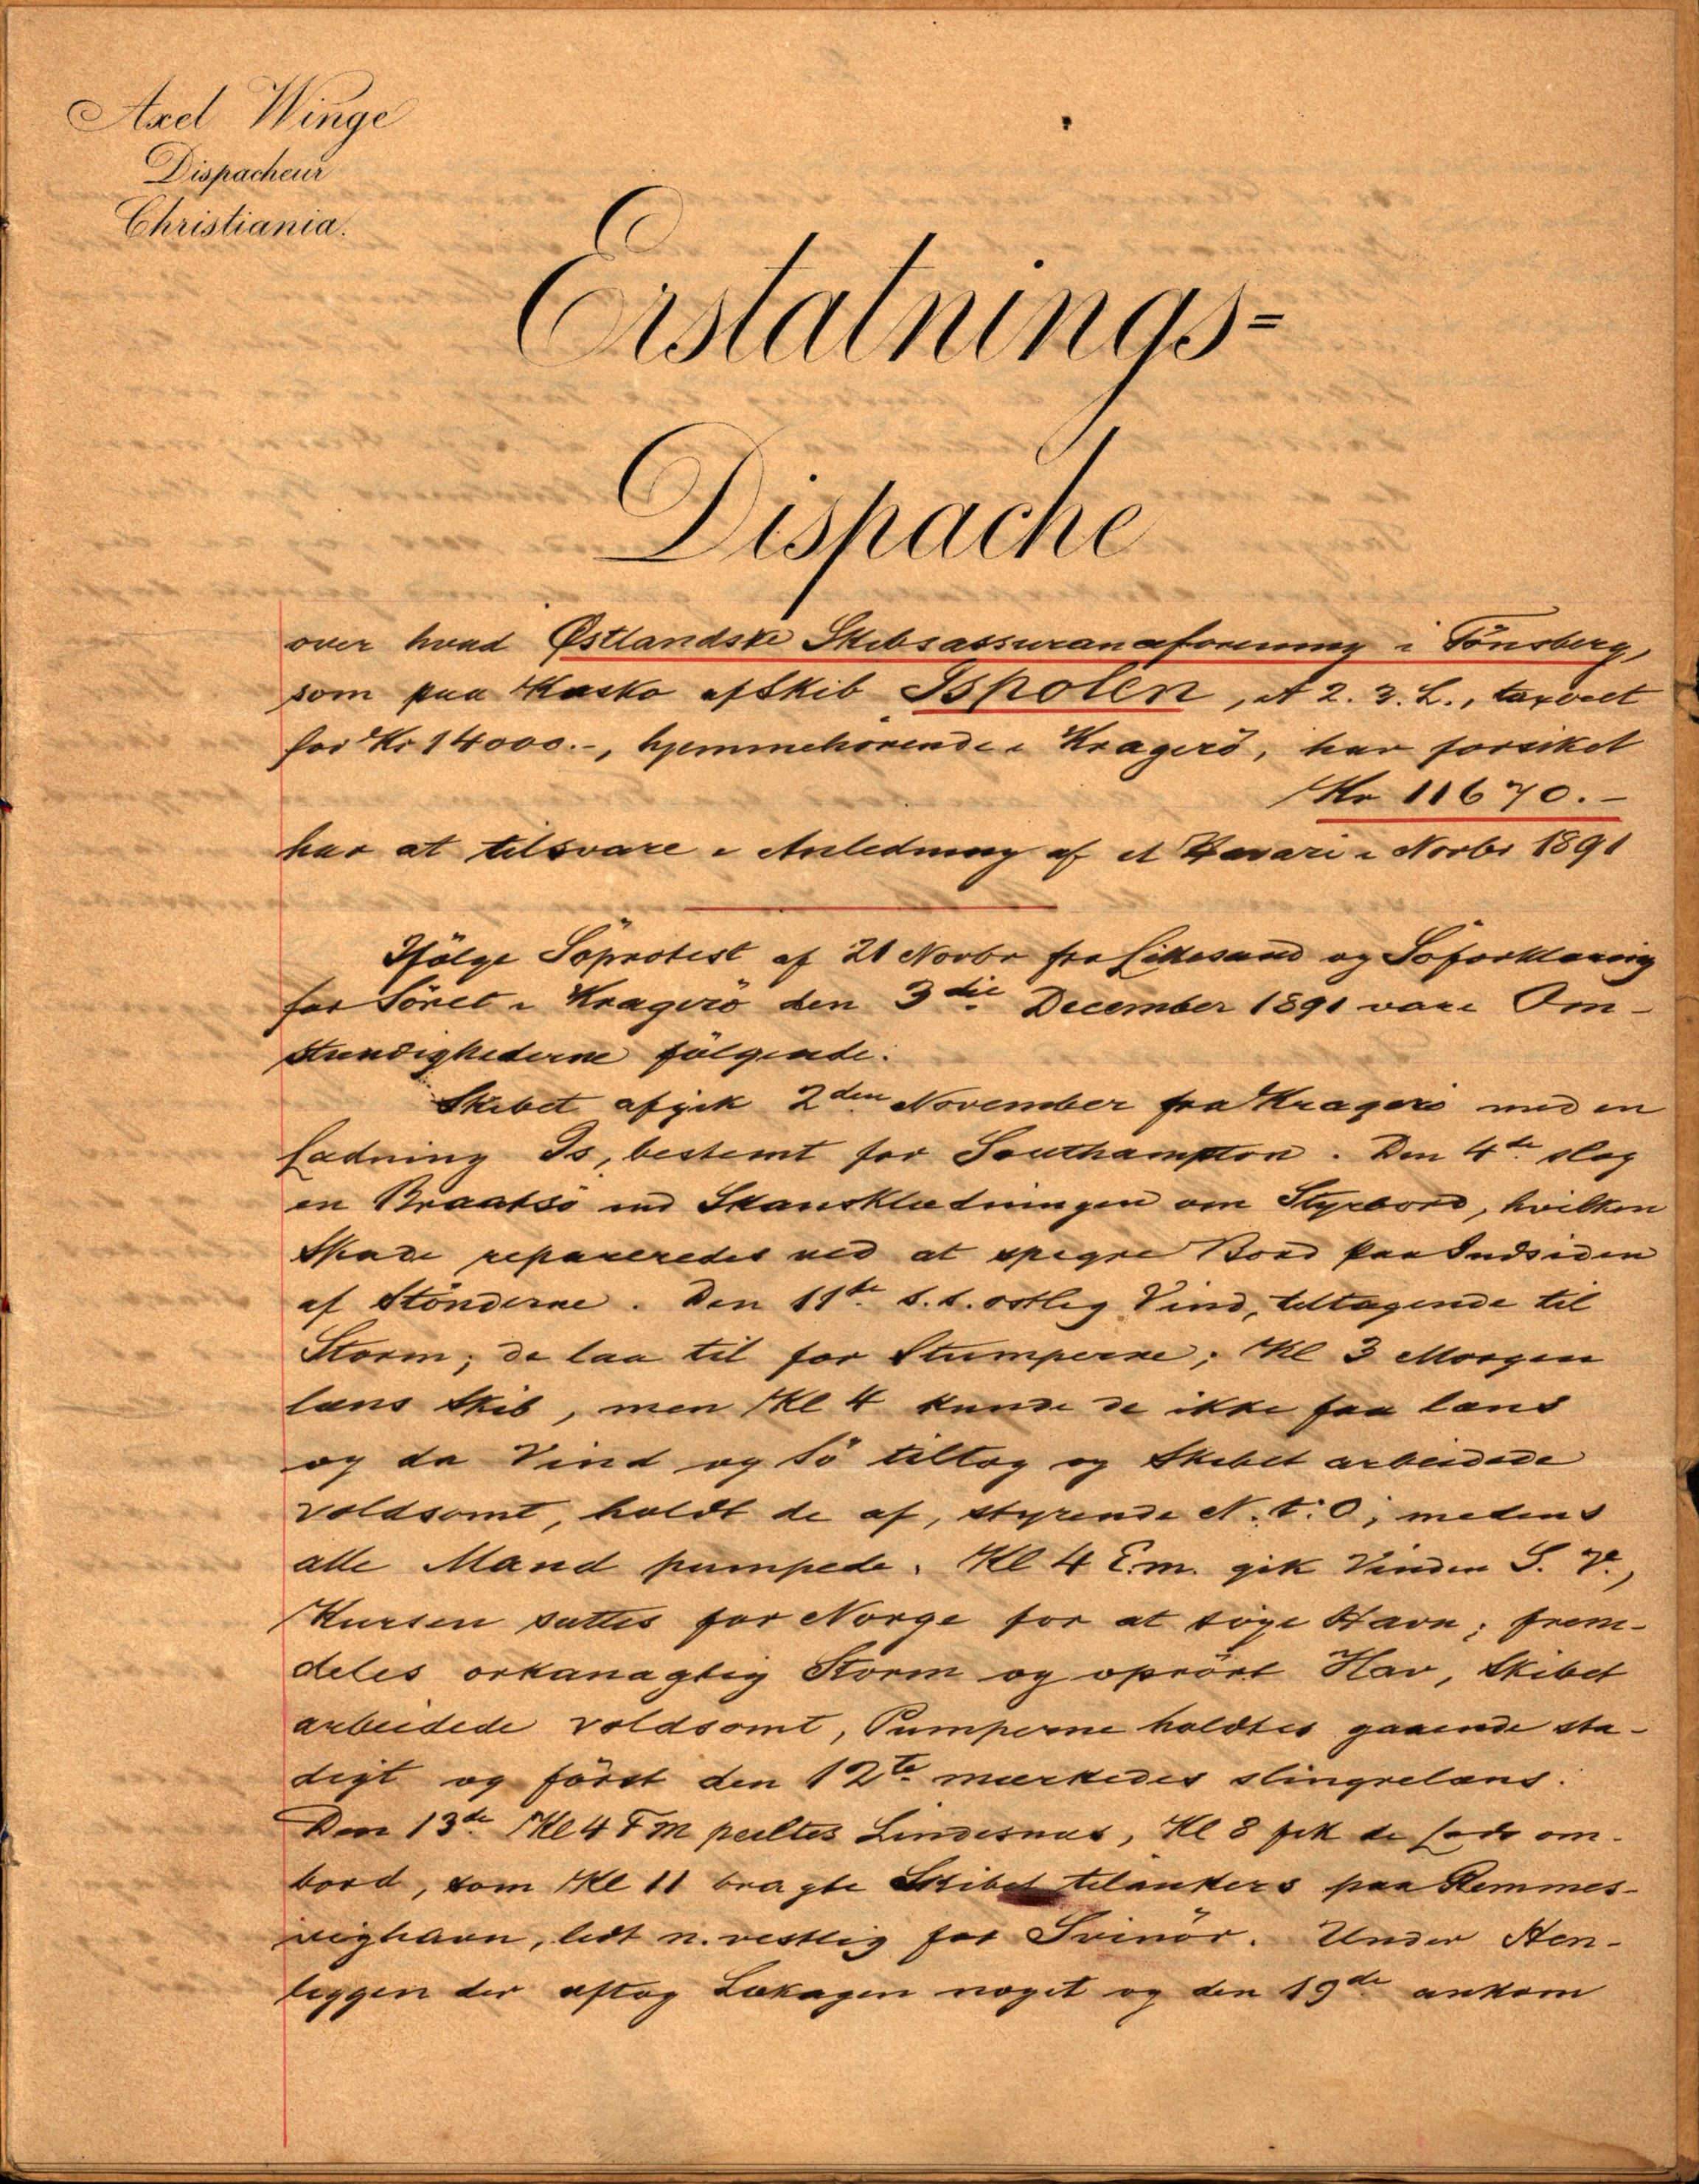 Axel Winge
Dispacheur
Christiania.
Erstatnings=
Dispache
over hvad Østlandske Skibsassuranceforening i Tönsberg,
som paa Kasko af Skib Ispolen, A 2. 3. L., taxeret
for Kr 14000.-, hjemmehörende i Kragerö, har forsikret
Kr 11670.-
har at tilsvare i Anledning af et Havari i Novbr 1891
Ifölge Söprotest af 21 Novbr fra Lillesand og Söforklaring
for Söret i Kragerö den 3die December 1891 vare Om-
stændighederne fölgende:
Skibet afgik 2den November fra Kragerö med en
Ladning Is, bestemt for Southampton. Den 4de slog
en Braatsö ind Skanseklædningen om Styrbord, hvilken
Skade repareredes ved at spigre Bord paa Indsiden
af Stönderne. Den 11te s.s. ostlig Vind, tiltagende til
Storm; de laa til for Stumperne; Kl 3 Morgen
læns Skib, men Kl 4 kunde de ikke faa læns
og da Vind og Sö tiltog og Skibet arbeidede
voldsomt, holdt de af, styrende N. t. O, medens
alle Mand pumpede. Kl 4 E.m. gik Vinden S. V.,
Kursen sattes for Norge for at söge Havn; frem-
deles orkanagtig Storm og oprört Hav, Skibet
arbeidede voldsomt, Pumperne holdtes gaaende sta-
digt og först den 12te mærkedes slingrelæns.
Den 13de Kl 4 FM peiltes Lindesnæs, Kl 8 fik de Lods om-
bord, som Kl 11 bragte Skibet tilankers paa Remmes-
vighavn, lidt n. vestlig for Svinör. Under Hen-
liggen der aftog Lækagen noget og den 19de ankom